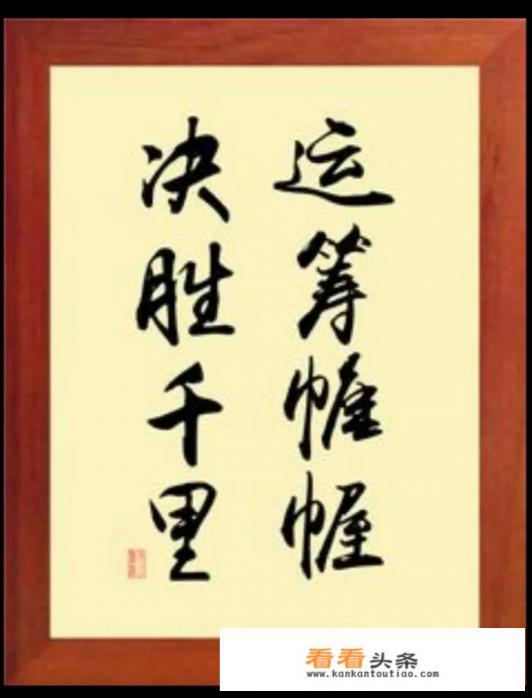 运筹帷幄
决胜千里
看看头条
www.kankantoutiao.com